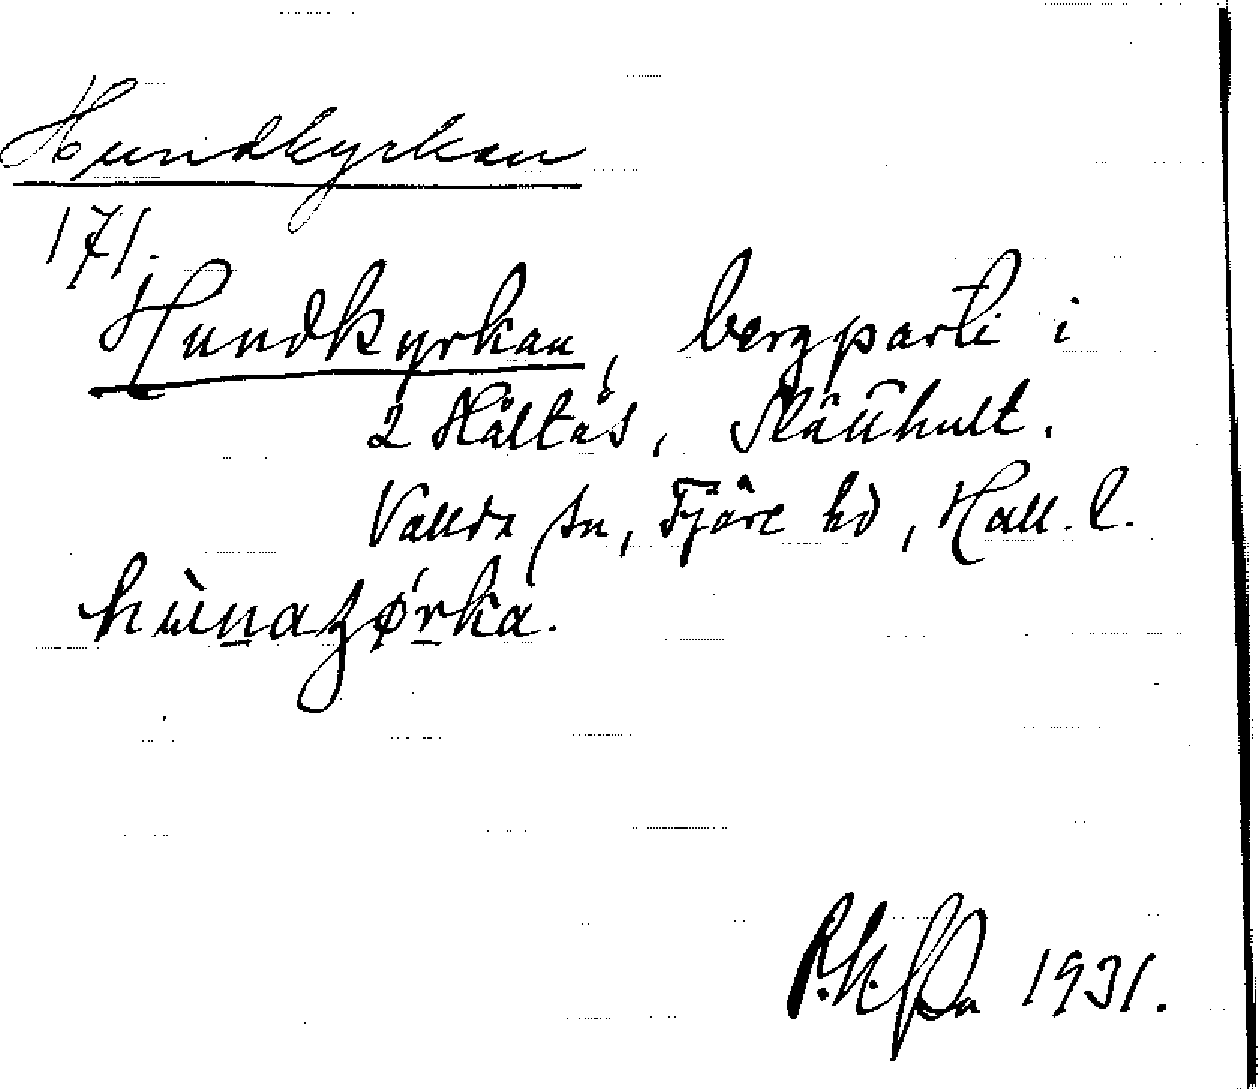 Hundkyrkan
171.
Hundkyrkan, bergparti i
2 Håltås, Släthult.
Vallda sn, Fjäre hd, Hall. l.
1931.